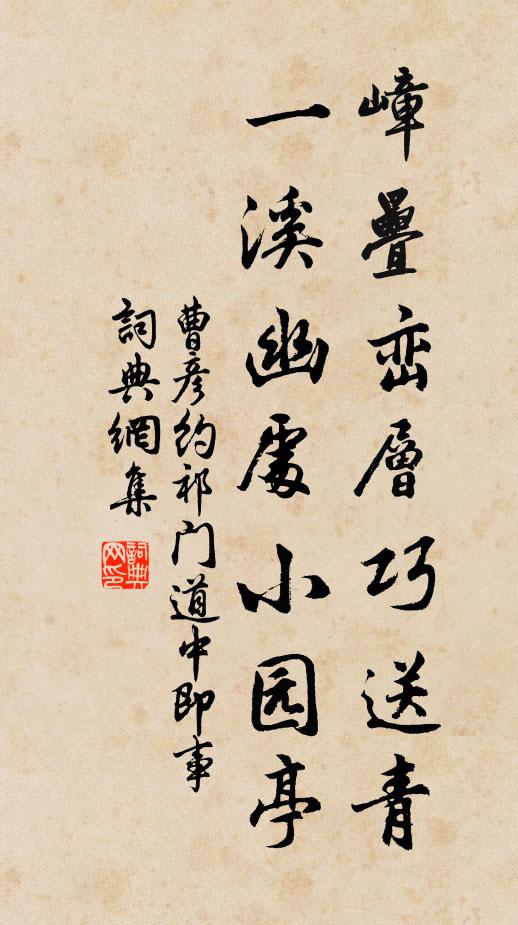 嶂疊峦層巧送青
一溪幽處小园亭
曹彦约祁门道中即事
詞典網集
詞典网印